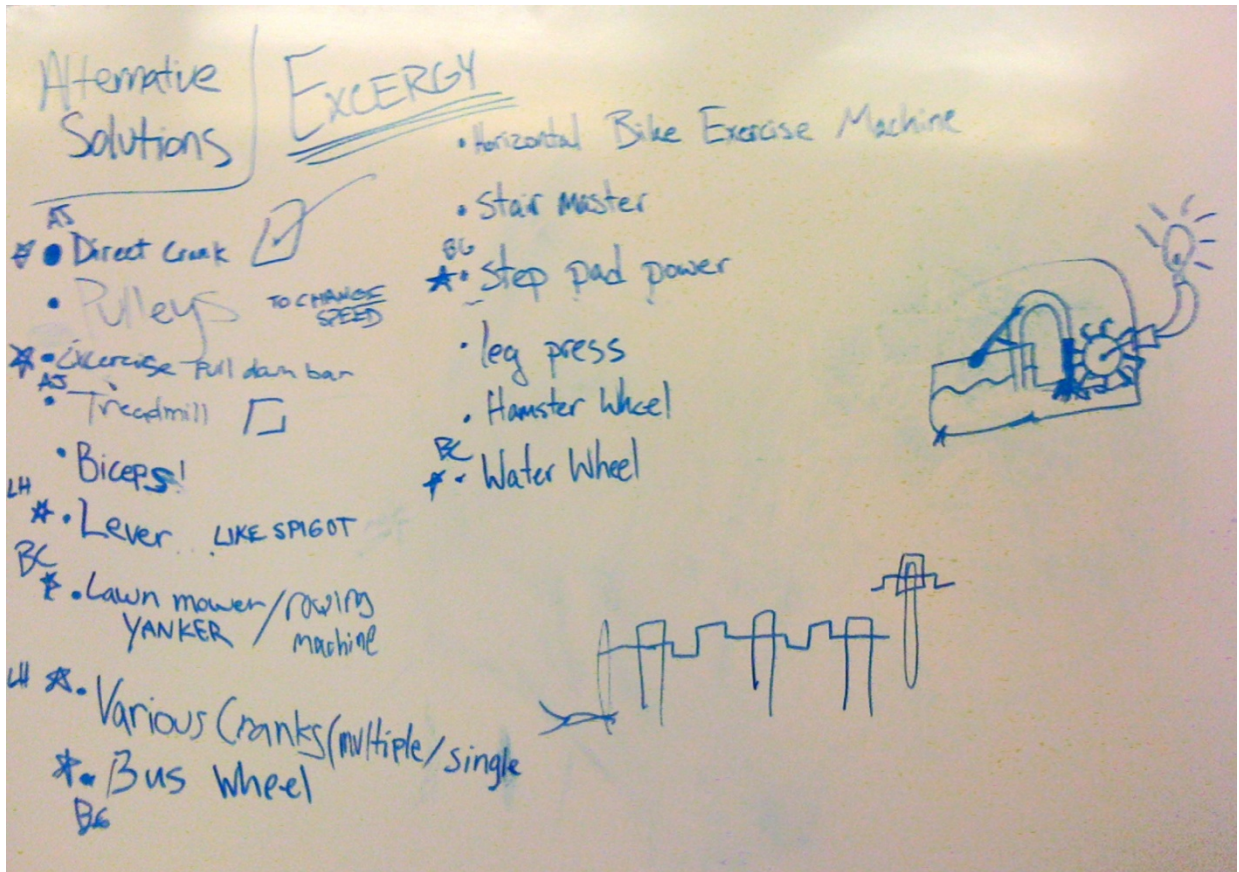 Alternative
Solutions
EXCERGY
AJ
Direct Crank
Pulleys TO CHANGE
SPEED
Excercise Pull down bar
AJ
Treadmill
Biceps!
LH
Lever LIKE SPIGOT
BC
Lawn mower/rowing
YANKER machine
LH
Various Cranks (multiple/single
Bus Wheel
BG
Horizontal Bike Exercise Machine
Stair Master
BG
Step pad power
leg press
Hamster Wheel
BC
Water Wheel